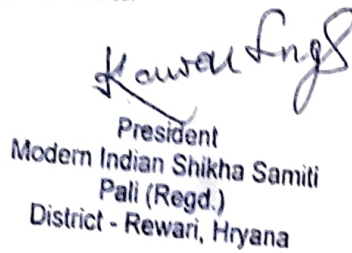 President
Modern Indian Shikha Samiti
Pali (Regd.)
District - Rewari, Hryana